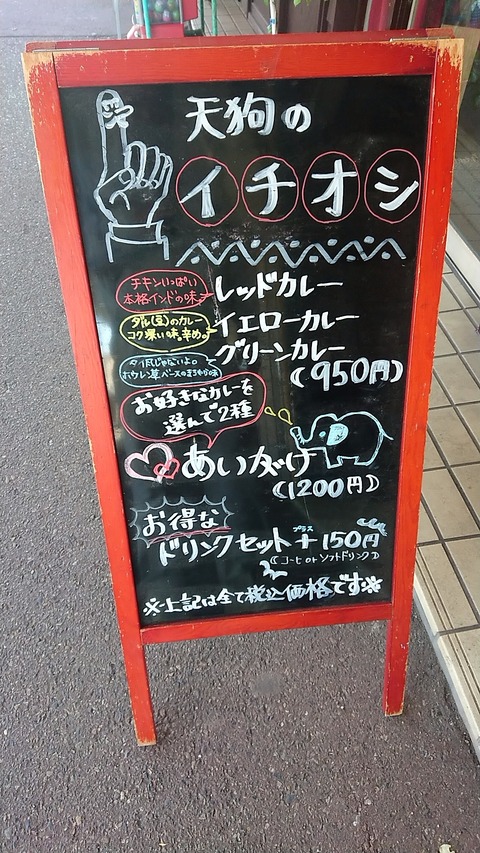 天狗の
イチオシ
チキンいっぱい
本格インドの味
レッドカレー
ダル(豆)のカレー
コク深い味。辛め。
イエローカレー
タイ風じゃないよ。
ホウレン草ベースのまろやか味
グリーンカレー
(950円)
お好きなカレーを
選んで2種
あいがけ
(1200円)
お得な
ドリンクセット+150円
プラス
(コーヒ or ソフトドリンク)
※上記は全て税込価格です※